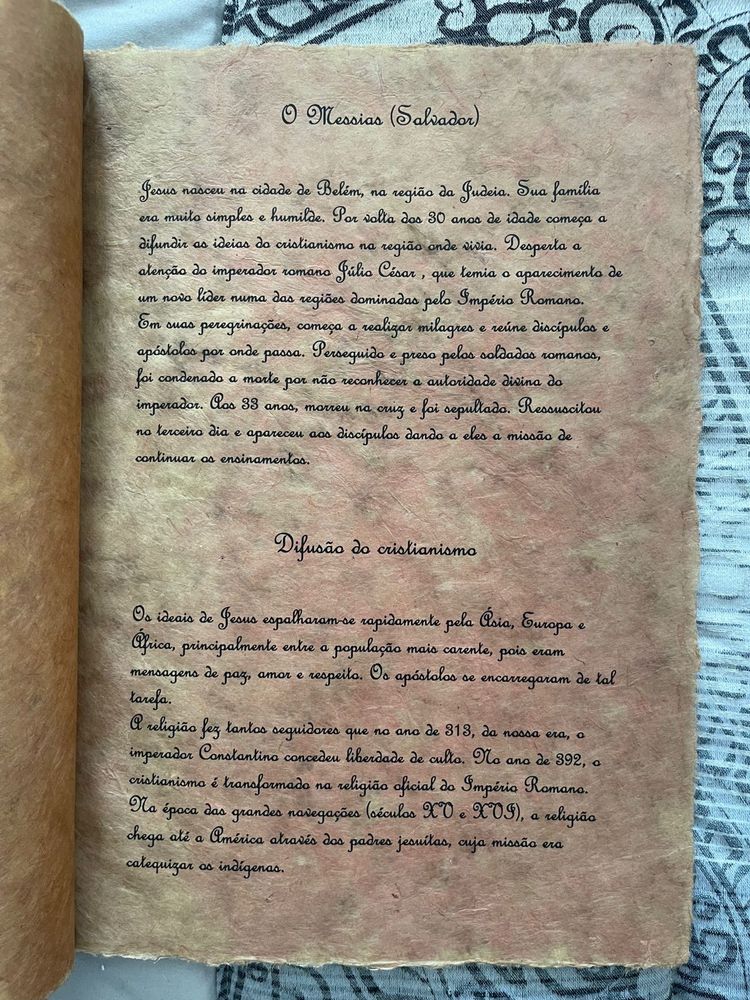 O Messias (Salvador)
Jesus nasceu na cidade de Belém, na região da Judeia. Sua família
era muito simples e humilde. Por volta dos 30 anos de idade começa a
difundir as ideias do cristianismo na região onde vivia. Desperta a
atenção do imperador romano Júlio César , que temia o aparecimento de
um novo líder numa das regiões dominadas pelo Império Romano.
Em suas peregrinações, começa a realizar milagres e reúne discípulos e
apóstolos por onde passa. Perseguido e preso pelos soldados romanos,
foi condenado a morte por não reconhecer a autoridade divina do
imperador. Aos 33 anos, morreu na cruz e foi sepultado. Ressuscitou
no terceiro dia e apareceu aos discípulos dando a eles a missão de
continuar os ensinamentos.
Difusão do cristianismo
Os ideais de Jesus espalharam-se rapidamente pela Ásia, Europa e
África, principalmente entre a população mais carente, pois eram
mensagens de paz, amor e respeito. Os apóstolos se encarregaram de tal
tarefa.
A religião fez tantos seguidores que no ano de 313, da nossa era, o
imperador Constantino concedeu liberdade de culto. No ano de 392, o
cristianismo é transformado na religião oficial do Império Romano.
Na época das grandes navegações (séculos XV e XVI), a religião
chega até a América através dos padres jesuítas, cuja missão era
catequizar os indígenas.